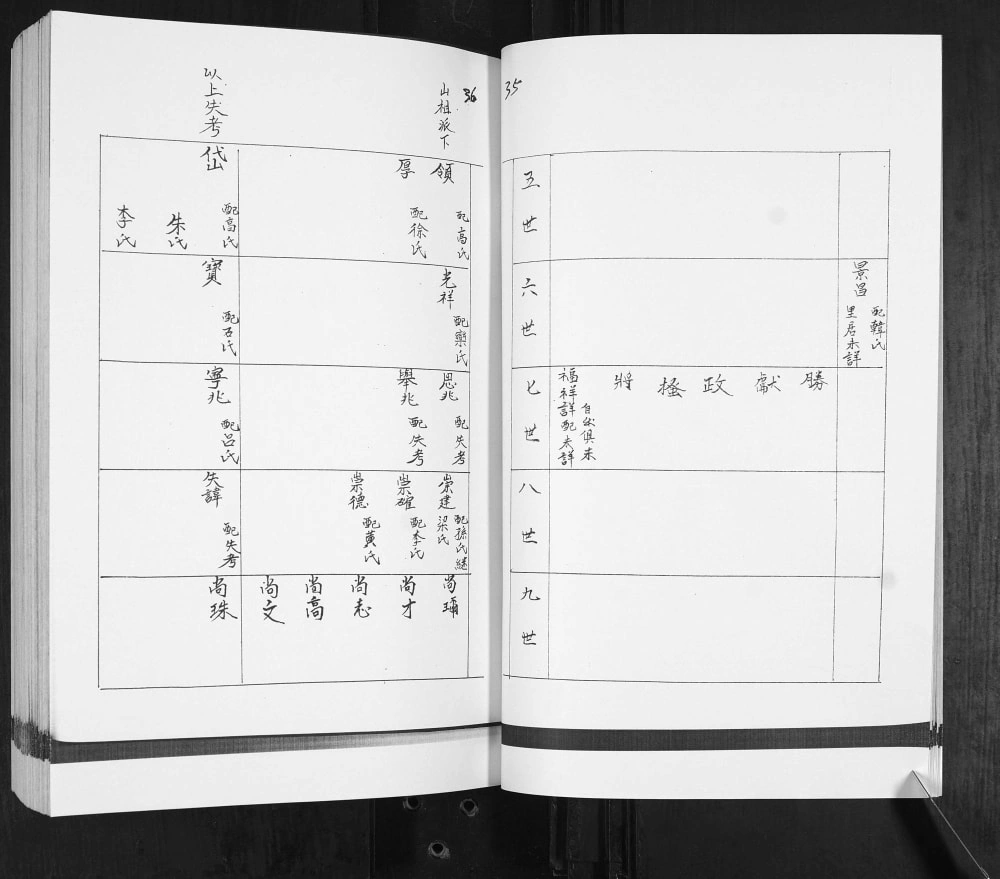 35
景昌
配韓氏
里居未詳
勝
獻
政
將
自然俱未
福祥詳配未詳
五世
六世
七世
八世
九世
36
山祖派下
領
配高氏
厚
配徐氏
光祥
配欒氏
思兆
配失考
舉兆
配失考
崇建
配孫氏繼
梁氏
崇確
配李氏
崇德
配黃氏
尚才
尚志
尚高
尚文
以上失考
岱
配高氏
朱氏
李氏
寶
配石氏
寧兆
配呂氏
失諱
配失考
尚珠